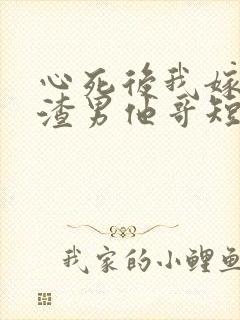 心死後我嫁
渣男他哥短
我家的小鯉魚